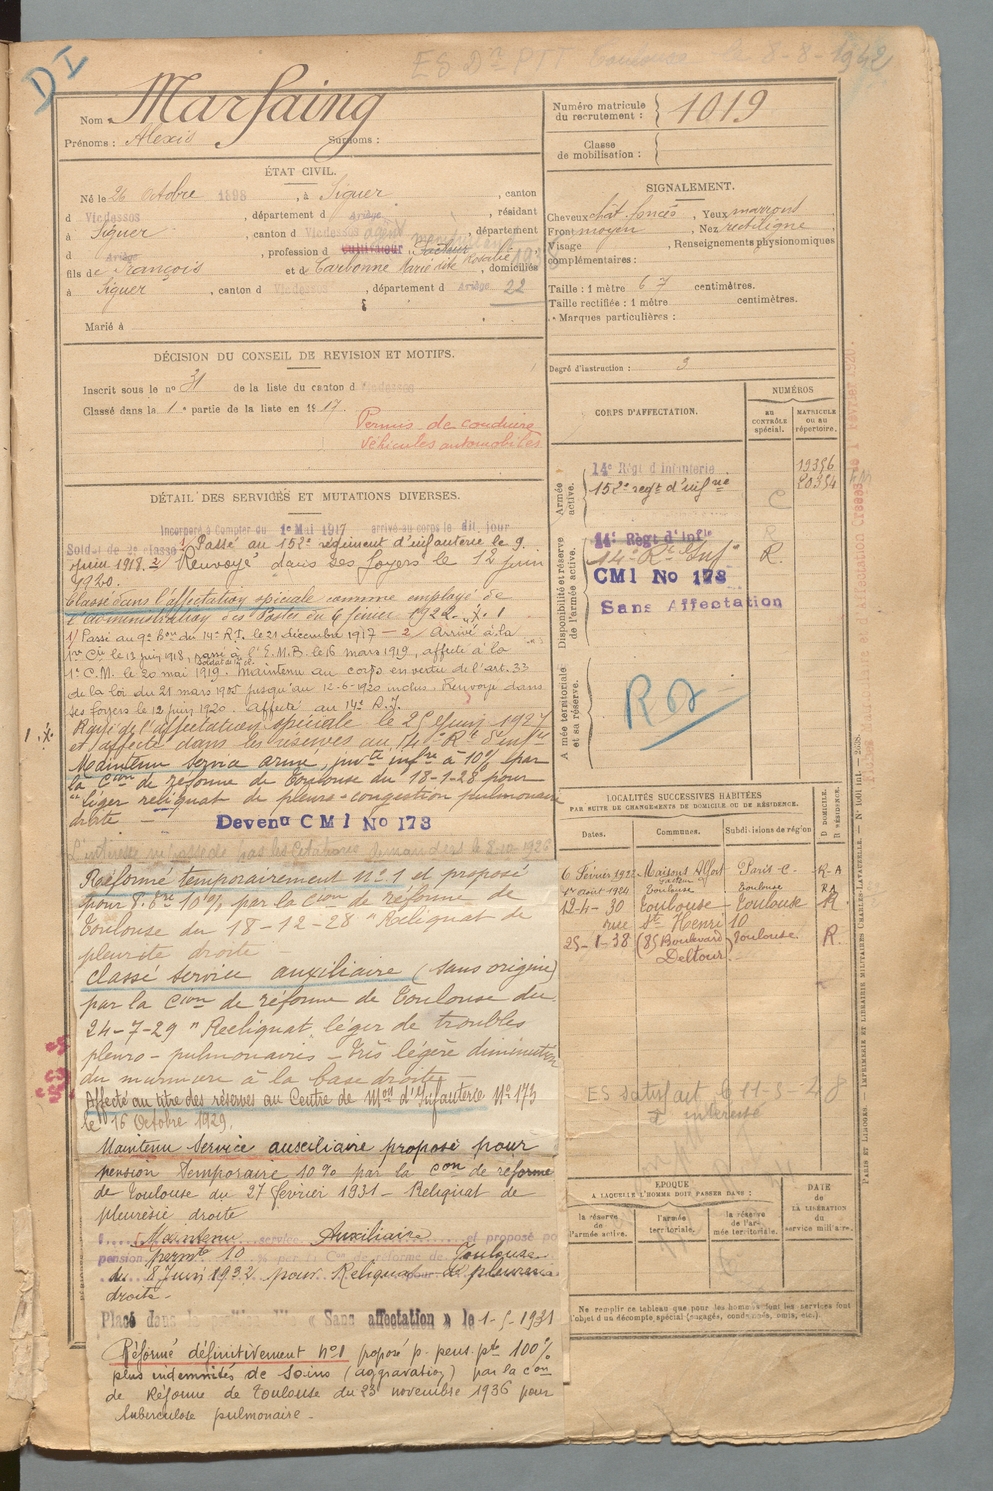 DI
ES Don PTT Toulouse le 8-8-1942
Nom : Marfaing
Prénoms : Alexis Surnoms :
Numéro matricule
du recrutement : 1019
Classe
de mobilisation :
ÉTAT CIVIL.
Né le 26 Octobre 1898, à Siguer, canton
d Vicdessos, département d Ariège, résidant
à Siguer, canton d Vicdessos, département
d Ariège, profession d cultivateur Facteur
fils de François et d Carbonne Marie dite Rosalie, domiciliés
à Siguer, canton d Vicdessos, département d Ariège 22
Marié à
SIGNALEMENT.
Cheveux chat. foncés, Yeux marrons
Front moyen, Nez rectiligne
Visage, Renseignements physionomiques
complémentaires :
Taille : 1 mètre 67 centimètres.
Taille rectifiée : 1 mètre centimètres.
Marques particulières :
Degré d'instruction : 3
DÉCISION DU CONSEIL DE REVISION ET MOTIFS.
Inscrit sous le no 31 de la liste du canton d Vicdessos
Classé dans la 1e partie de la liste en 1917.
Permis de conduire
véhicules automobiles
DÉTAIL DES SERVICES ET MUTATIONS DIVERSES.
Incorporé à compter du 1er Mai 1917 arrivé au corps le dit jour
Soldat de 2e classe 1/ Passé au 152e régiment d'infanterie le 9
juin 1918. 2/ Renvoyé dans ses foyers le 12 juin
1920.
Classé dans l'affectation spéciale comme employé de
l'administration des Postes du 6 février 1922.
1/ Passé au 9e Bon du 14e R.I. le 21 décembre 1917 - 2 Arrivé à la
1re Cie le 13 juin 1918, passé à l'E.M.B. le 16 mars 1919, affecté à la
soldat de 1e cl.
1e C.M. le 20 mai 1919. Maintenu au corps en vertu de l'art. 33
de la loi du 21 mars 1905 jusqu'au 12-6-1920 inclus. Renvoyé dans
ses foyers le 12 juin 1920. Affecté au 14e R.I.
Rayé de l'affectation spéciale le 25 Juin 1927
et affecté dans les réserves au 14e Rt d'infie
Maintenu service armé, invté infre à 10% par
la Cion de réforme de Toulouse du 18-1-28 pour
"léger reliquat de pleuro-congestion pulmonaire
droite -
Devenu CMI No 173
Réformé temporairement No 1 et proposé
pour P. Tre 10% par la Cion de réforme de
Toulouse du 18-12-28 "Reliquat de
pleurite droite
classé service auxiliaire (sans origine)
par la Cion de réforme de Toulouse du
24-7-29 "Recliquat léger de troubles
pleuro-pulmonaires - très légère diminution
du murmure à la base droite -
Affecté au titre des réserves au Centre de Mon d'Infanterie No 173
le 16 Octobre 1929.
Maintenu Service auxiliaire proposé pour
pension temporaire 10% par la Con de réforme
de Toulouse du 27 février 1931 - Reliquat de
pleurésie droite
Maintenu service Auxiliaire et proposé po
pension permte 10 % par la Con de réforme de Toulouse
du 8 Juin 1932 pour Reliquat de pleurésie
droite -
Placé dans la position dite « Sans affectation » le 1-5-1931
Réformé définitivement No 1 proposé p. pens. pte 100%
plus indemnités de soins (aggravation) par la Con
de Réforme de Toulouse du 23 novembre 1936 pour
tuberculose pulmonaire -
CORPS D'AFFECTATION.
NUMÉROS
AU
CONTRÔLE
spécial.
MATRICULE
OU AU
répertoire.
Armée
active.
14e Régt d'Infanterie 19356
152e regt d'infrie 20354
C
Disponibilité et réserve
de l'armée active.
14e Règt d'Infie
14e Rt Infie R.
CMI No 173
Sans Affectation
Armée territoriale
et sa réserve.
LOCALITÉS SUCCESSIVES HABITÉES
PAR SUITE DE CHANGEMENTS DE DOMICILE OU DE RÉSIDENCE.
Dates. Communes. Subdivisions de région
D DOMICILE.
R RÉSIDENCE.
6 Février 1922 Maisons Alfort Paris - C. R-A
1er août 1924 Toulouse Toulouse RA
12-4-30 Toulouse - Toulouse R.
rue Ste Henri 10
25-1-38 (85 Boulevard Toulouse. R.
Deltour)
ES satisfait
intéressé
ÉPOQUE
A LAQUELLE L'HOMME DOIT PASSER DANS :
DATE
DE
LA LIBÉRATION
du
service militaire.
la réserve
de
l'armée active.
l'armée
territoriale.
la réserve
de l'ar-
mée territoriale.
Ne remplir ce tableau que pour les hommes dont les services font
l'objet d'un décompte spécial (engagés, condamnés, omis, etc.).
PARIS ET LIMOGES. — IMPRIMERIE ET LIBRAIRIE MILITAIRES CHARLES-LAVAUZELLE.